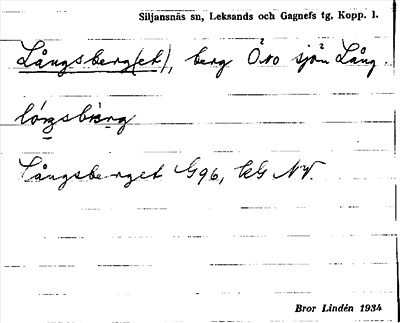 Siljansnäs sn, Leksands och Gagnefs tg, Kopp. l.
Långsberg(et), berg Ö. o sjön Lång.
Långsberget G96, kG NV.
Bror Lindén 1934